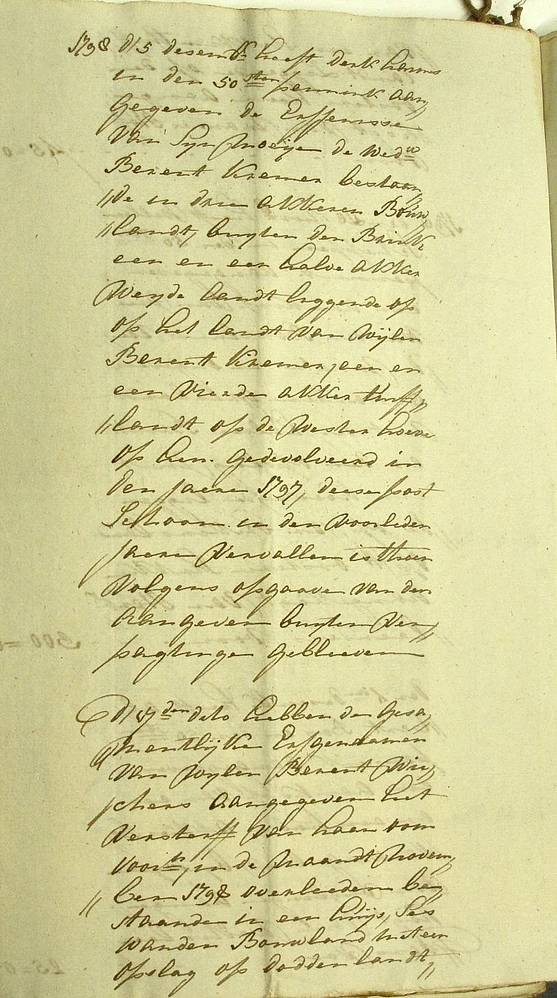 1798 d 15 desembr heeft derk harms
in den 50sten pennink aan„
gegeven de Erffenisse
van Syn Moeije de Wedue
Berent Kremer bestaan„
„de in drie akkeren Bouw„
„landt, buyten den Brink
een en een halve akker
Weyde landt liggende op
op het landt van Wijlen
Berent Kremer, een en
een vierde akker turff„
„landt op de Wester hoeve
op hem gedevolveerd in
den jaere 1797, deese post
Schoon in den voorleden
jaere vervallen is thoen
volgens opgaave van den
aangever buyten ver„
pagtinge gebleeven

d 17den dito hebben de gesa„
„mentlijke Erfgenaemen
van Wylen Berent Win„
schers aangegeven het
versterff van haer oom
voort, in de Maandt Novem„
„ber 1798 overleeden be„
staande in een huijs, Ses
wanden Bouwland met een
opslag op dodden landt„